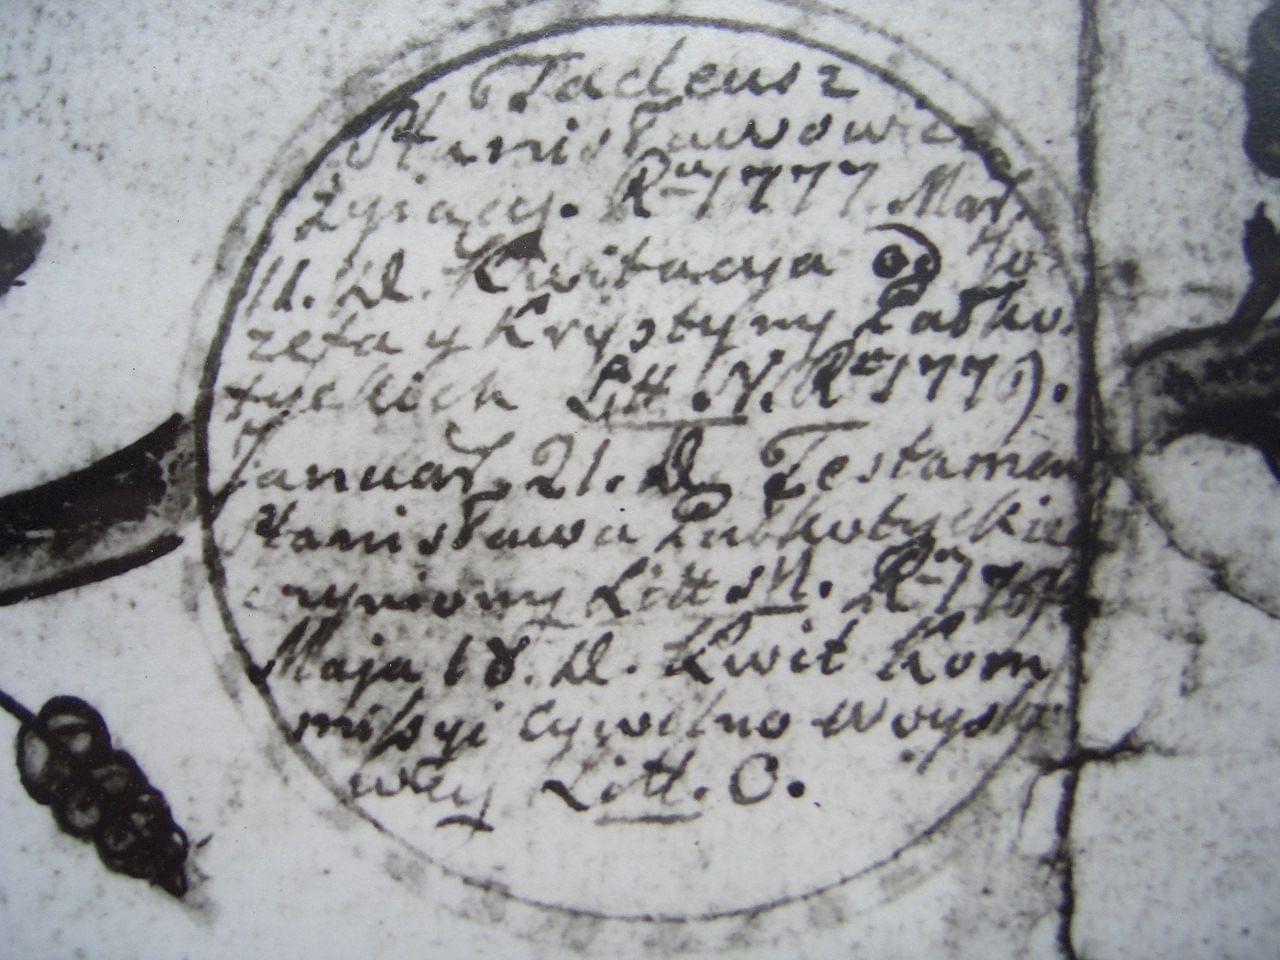 Tadeusz
Stanisławowicz
żyiący. Ru 1777 Mar.
11. D. Kwitacya od Jo-
zefa y Krystyny Żabko-
tyckich Litt. N. Ru 177
Januar. 21. D. Testamen
Stanisława Żabkotyckie
czyniony Litt. Ru
Maja 18. D. Kwit Kom
missyi Cywilno Woysko
wey Litt. O.